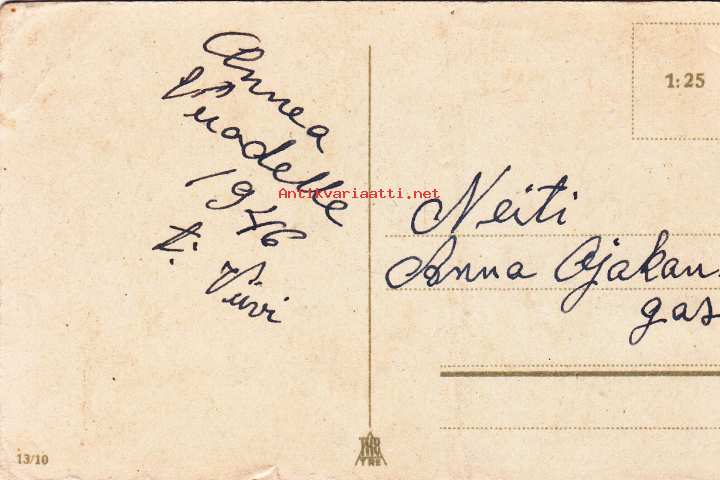 Onnea
Vuodelle
1946
t: Viivi
1:25
Neiti
Anna Ojakan
gas
13/10
TRE
Antikvariaatti.net